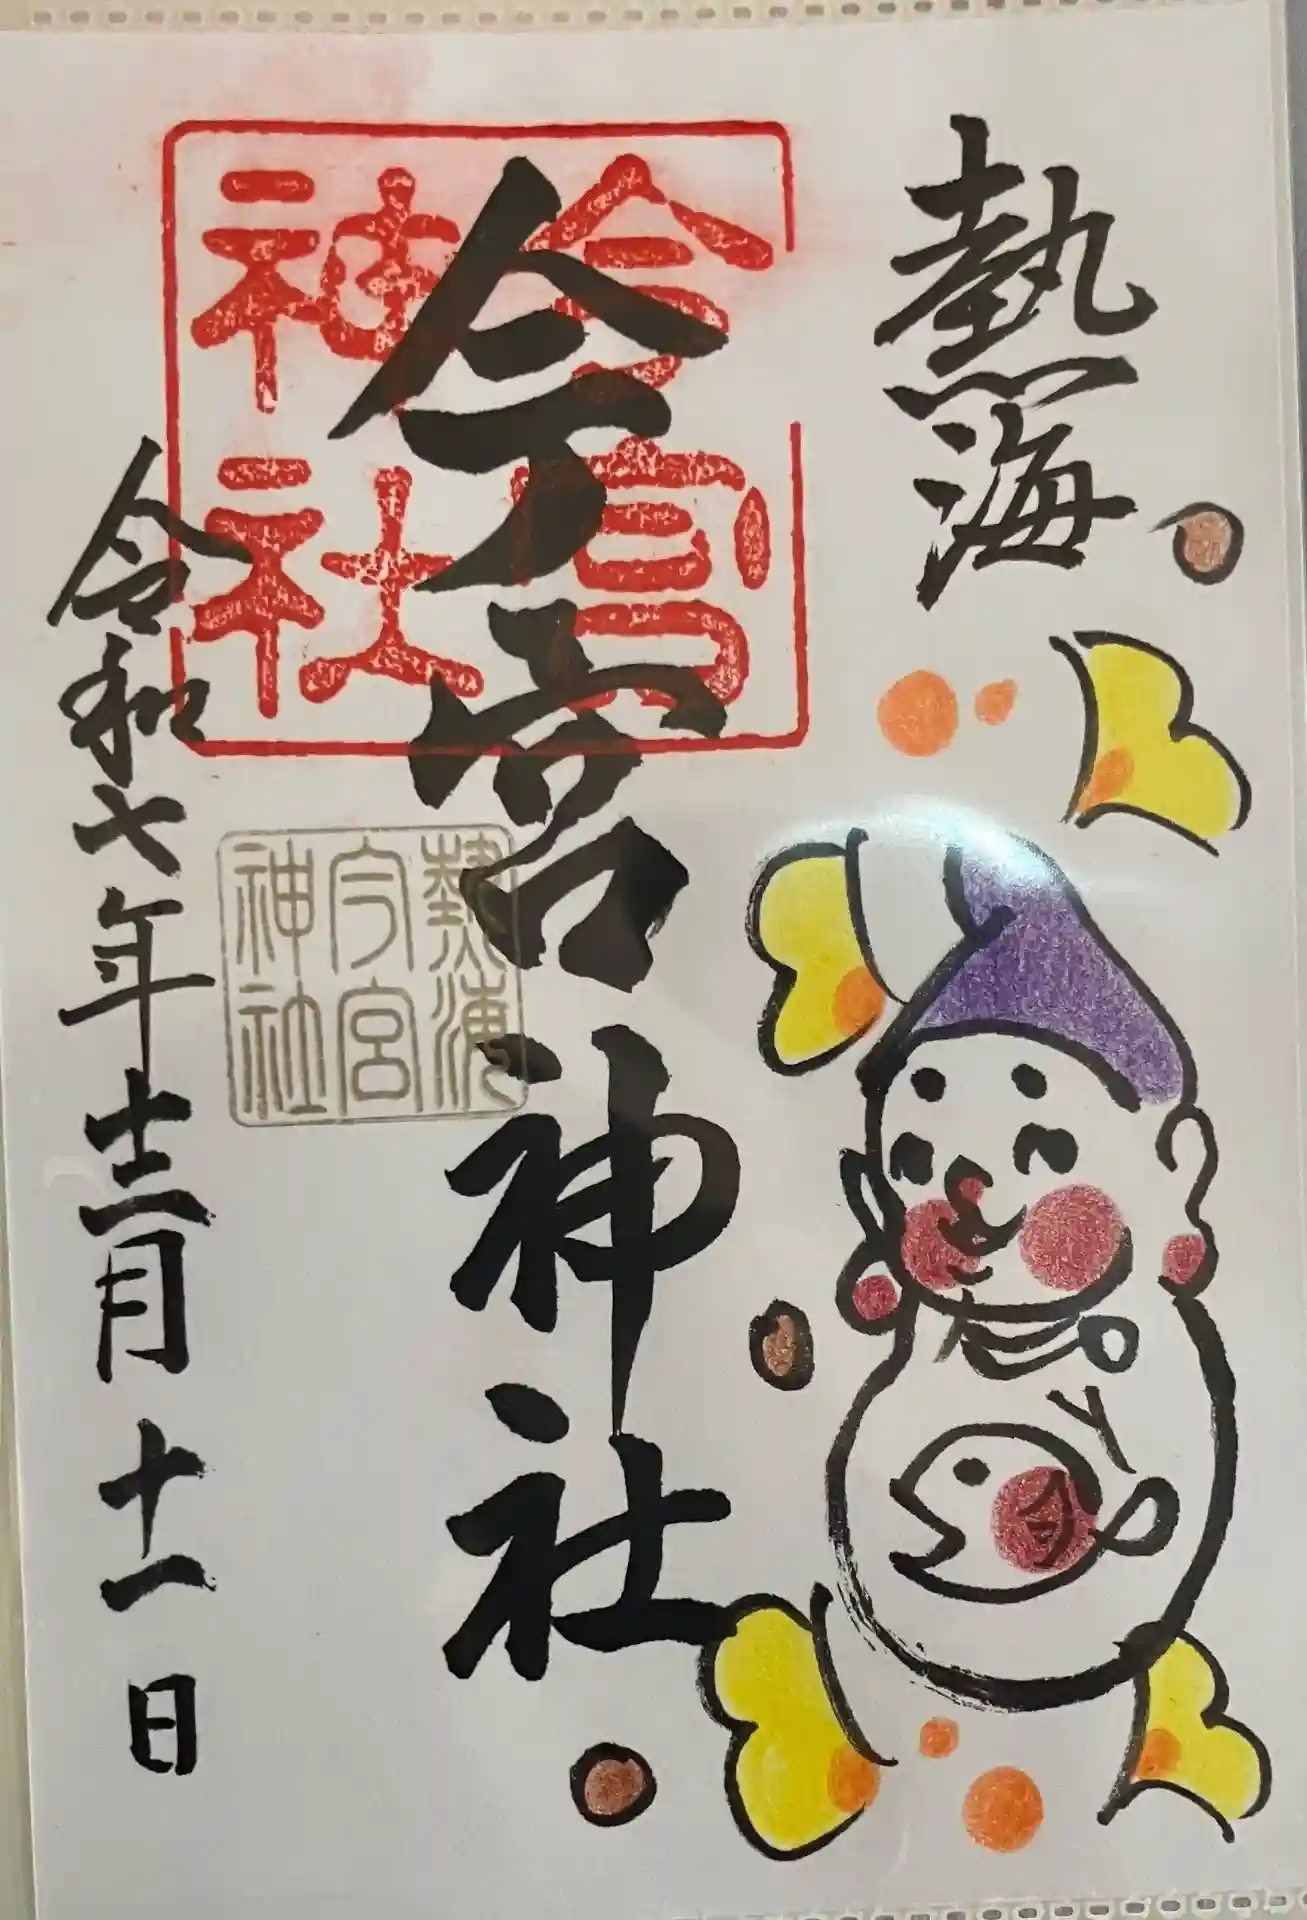 熱海
今宮神社
今宮
神社
熱海
今宮
神社
令和七年十二月十一日